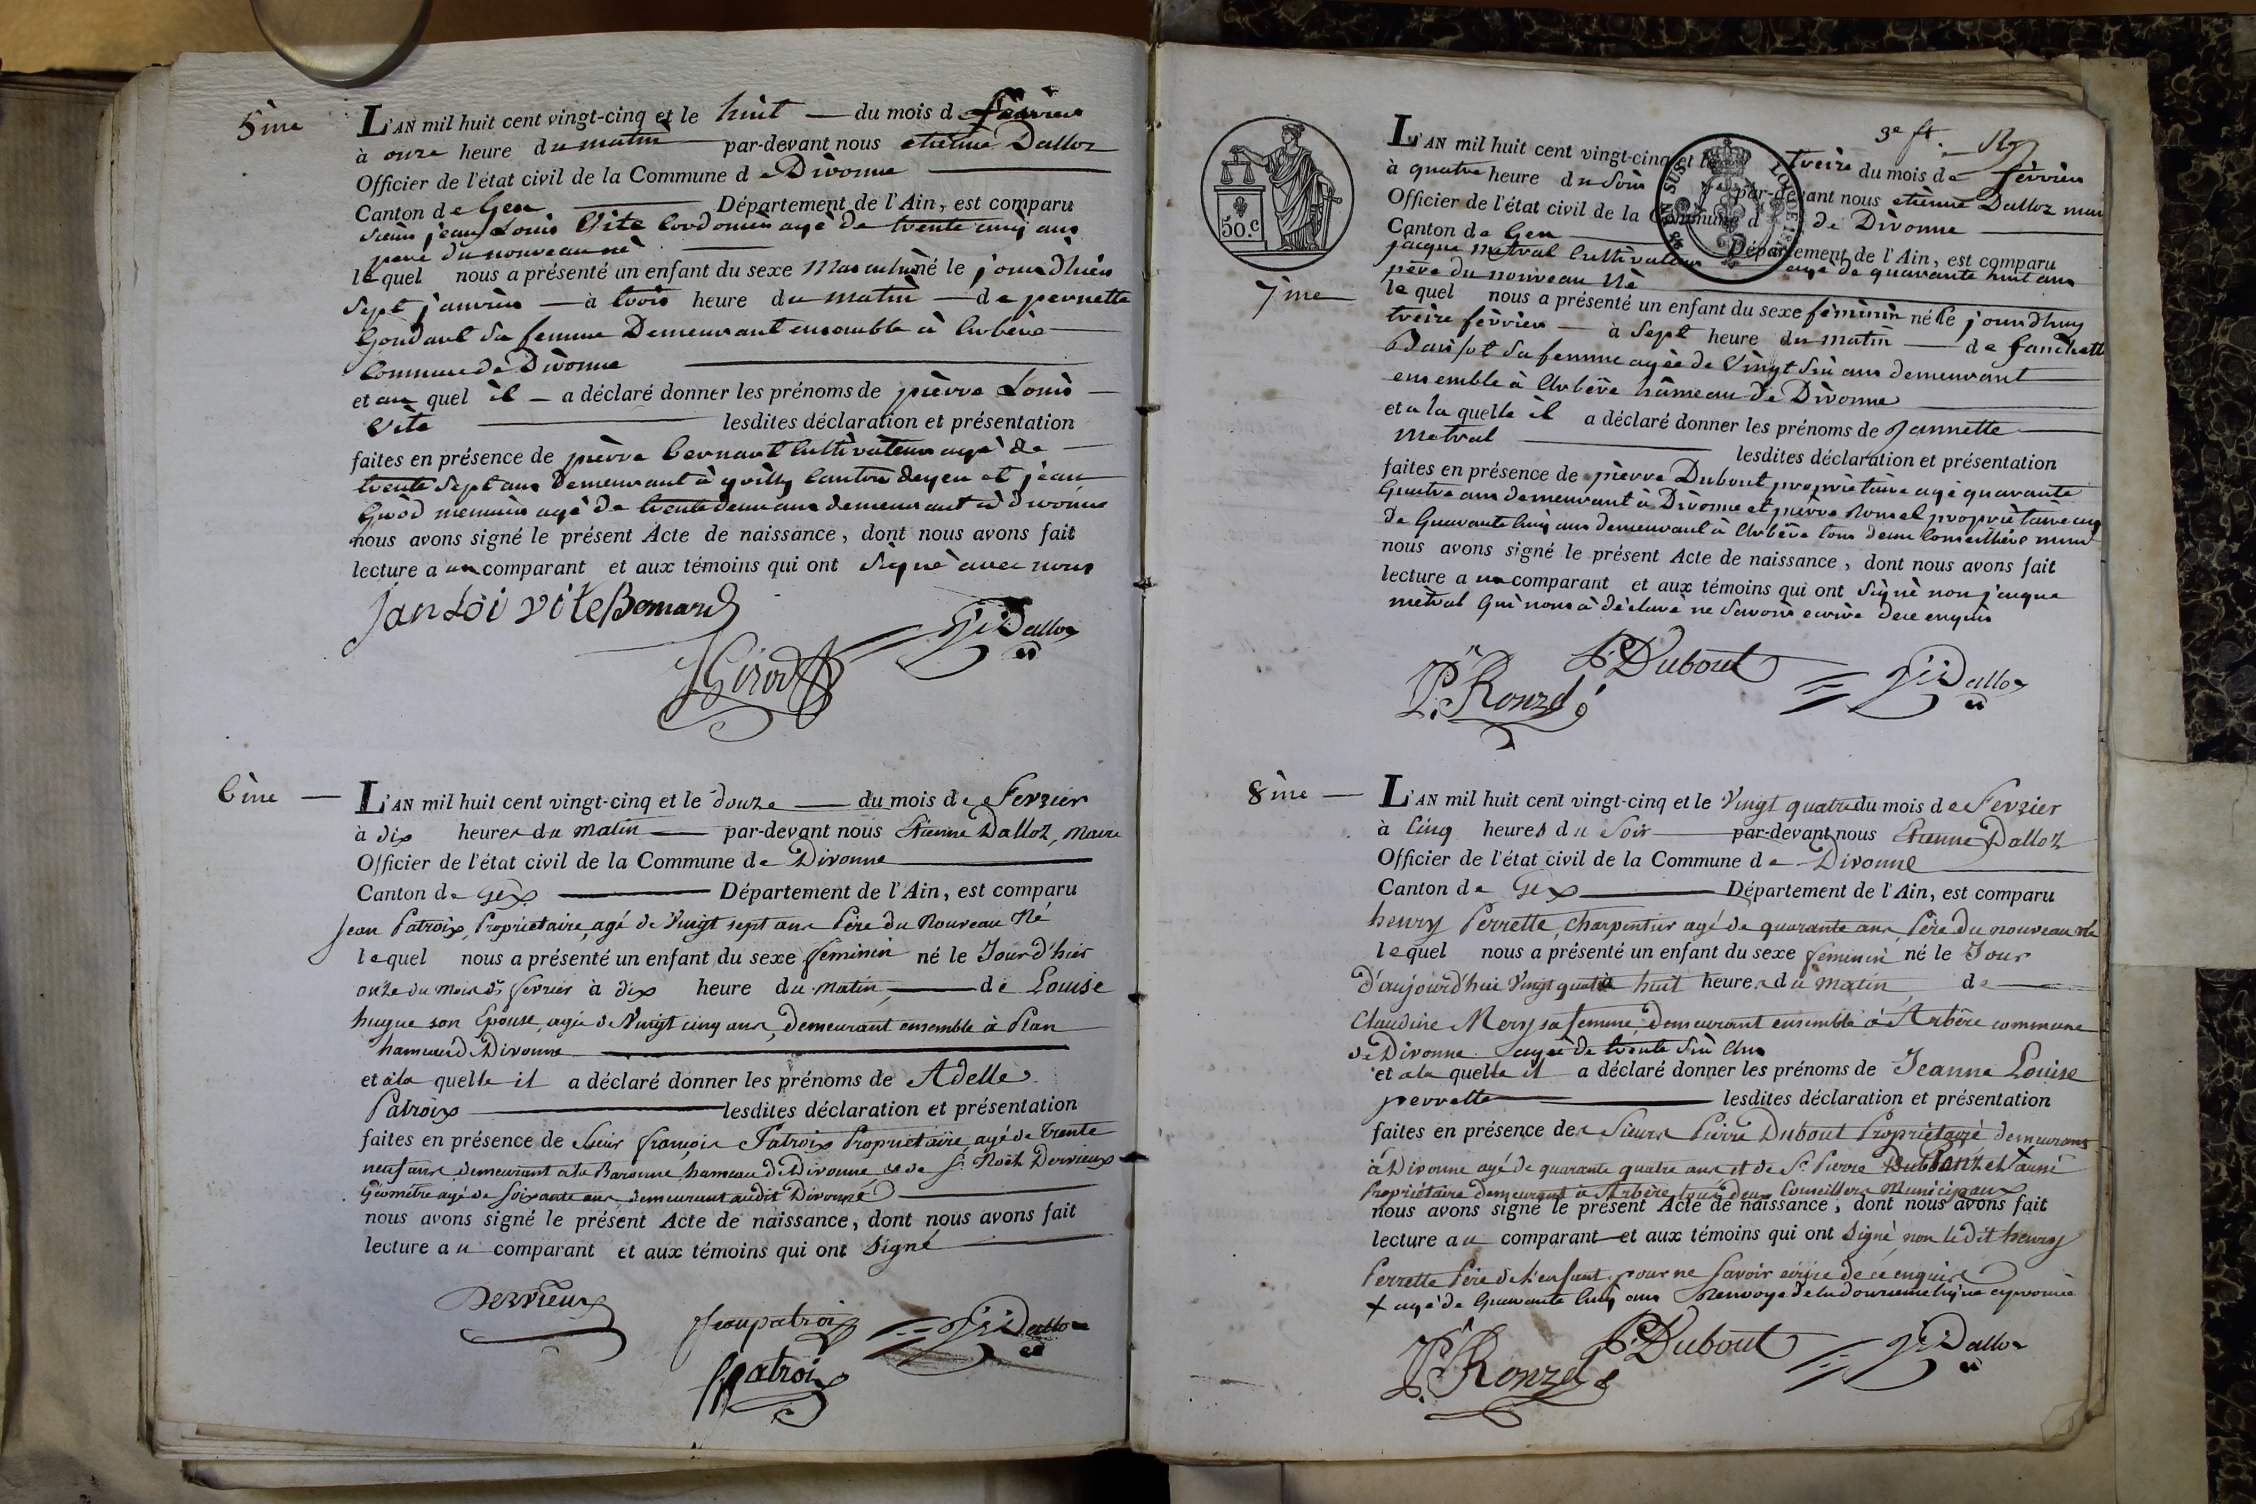 5ème
L'AN mil huit cent vingt-cinq et le huit du mois de fèvrier
à onze heure du matin par-devant nous etienne Dalloz
Officier de l'état civil de la Commune de Divonne
Canton de Gex Département de l'Ain, est comparu
Sieur jean Louis Vite Cordonier agé de trente cinq ans
pere du nouveau né
lequel nous a présenté un enfant du sexe Masculin né le jourdhier
sept janvier à trois heure du matin de pernette
sa femme Demeurant ensemble à Arbère
Commune de Divonne
et au quel il a déclaré donner les prénoms de pièrre Louis
Vite lesdites déclaration et présentation
faites en présence de pièrre bernard Cultivateur agé de
trente sept ans Demeurant à grilly Canton de gex et jean
Girod menuisier agé de trente deux ans demeurant à divonne
nous avons signé le présent Acte de naissance, dont nous avons fait
lecture a au comparant et aux témoins qui ont Signé avec nous
jan Loi vite Bernard
JGirod Dalloz
6ème
L'AN mil huit cent vingt-cinq et le douze du mois de Fevrier
à dix heures du matin par-devant nous Etienne Dalloz, Maire
Officier de l'état civil de la Commune de Divonne
Canton de Gex Département de l'Ain, est comparu
Jean Patroix, Propriétaire, agé de Vingt sept ans Père du Nouveau Né
lequel nous a présenté un enfant du sexe féminin né le Jour d'hier
onze du mois de fevrier à dix heure du matin, de Louise
hugue son Epouse, agée de Vingt cinq ans, demeurant ensemble à Plan
hameau de Divonne
et à la quelle il a déclaré donner les prénoms de Adelle
Patroix lesdites déclaration et présentation
faites en présence de Sieur françois Patroix Propriétaire agé de trente
neuf ans demeurant a la Baronne hameau de Divonne, et de Sr. Noël Dervieux
Géomètre agé de soixante ans demeurant audit Divonne
nous avons signé le présent Acte de naissance, dont nous avons fait
lecture au comparant et aux témoins qui ont Signé
Dervieux
Jeanpatroix Dalloz
fpatroix
3e ft.
50.c
L'AN mil huit cent vingt-cinq et le treize du mois de fèvrier
à quatre heure du Soir par-devant nous etienne Dalloz
Officier de l'état civil de la Commune de Divonne
Canton de Gex Département de l'Ain, est comparu
jacque metral Cultivateur agé de quarante huit ans
père du nouveau Né
7ème
lequel nous a présenté un enfant du sexe féminin né le jourdhuy
treize fèvrier à sept heure du matin de fanchette
sa femme agée de Vingt Six ans demeurant
ensemble à Arbère hâmeau de Divonne
et a la quelle il a déclaré donner les prénoms de Jannette
Metral lesdites déclaration et présentation
faites en présence de pièrre Dubout propriètaire agé quarante
Quatre ans demeurant à Divonne et pièrre Ronzel propriètaire agé
de Quarante Cinq ans demeurant à Arbère tous deux Conseillère
nous avons signé le présent Acte de naissance, dont nous avons fait
lecture a au comparant et aux témoins qui ont Signé non jacque
metral Qui nous à déclaré ne Savoir ecrire de ce enquis
P. Ronzel P. Dubout Dalloz
8ème
L'AN mil huit cent vingt-cinq et le Vingt quatre du mois de Fevrier
à Cinq heures du Soir par-devant nous Etienne Dalloz
Officier de l'état civil de la Commune de Divonne
Canton de Gex Département de l'Ain, est comparu
henry Perrette, Charpentier agé de quarante ans, Père du nouveau né
lequel nous a présenté un enfant du sexe feminin né le Jour
D'aujourd'hui Vingt quatre à huit heures du matin, de
Claudine Mery sa femme, demeurant ensemble à Arbère commune
de Divonne agée de trente Six Ans
et a la quelle il a déclaré donner les prénoms de Jeanne Louise
perrette lesdites déclaration et présentation
faites en présence des Sieurs Pierre Dubout Propriétaire demeurans
à Divonne agé de quarante quatre ans et de Sr Pierre
Propriétaire demeurant à Arbère tous deux Conseillers Municipaux
nous avons signé le présent Acte de naissance, dont nous avons fait
lecture au comparant et aux témoins qui ont Signé non le dit henry
Perrette Père de l'enfant pour ne Savoir ecrire de ce enquis
X agé de Quarante Cinq ans Renvoye de la douzieme ligne aprouvé
P. Ronzel P. Dubout Dalloz